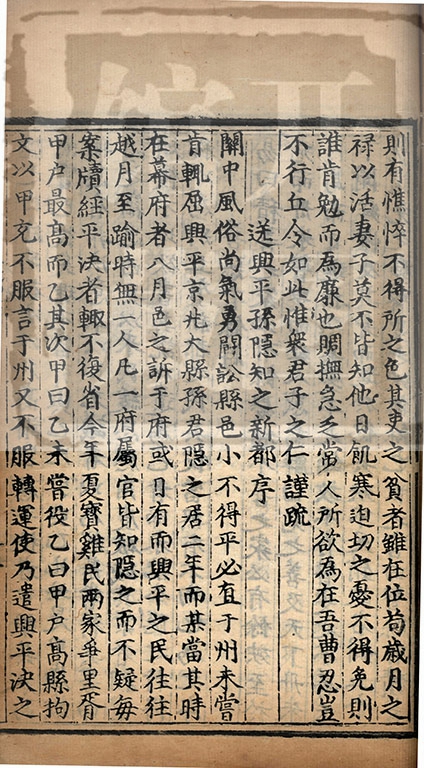 則有憔悴不得所之色其吏之貧者雖在位苟歲月之
祿以活妻子莫不皆知他日飢寒迫切之憂不得免則
誰肯勉而為廉也賙撫急乏常人所欲為在吾曹忍豈
不行丘令如此惟衆君子之仁謹疏
送興平孫隱之知新都序
關中風俗尚氣勇鬬訟縣邑小不得平必直于州未嘗
肯輒屈興平京兆大縣孫君隱之居二年而某當其時
在幕府者八月邑之訴于府或日有而興平之民往往
越月至踰時無一人凡一府屬官皆知隱之而不疑每
案牘經平決者輒不復省今年夏寶雞民兩家爭里胥
甲户最高而乙其次甲曰乙未嘗役乙曰甲户高縣拘
文以甲充不服言于州又不服轉運使乃遣興平決之